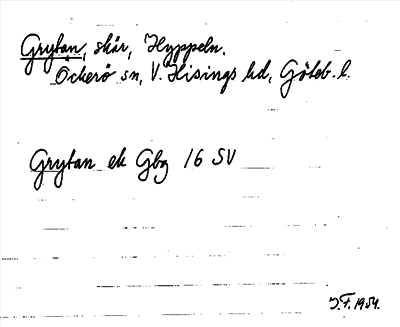 Grytan, skär, Hyppeln.
Öckerö sn, V. Hisings hd, Göteb. l.
Grytan ek Gbg 16 SV
J.F. 1954.